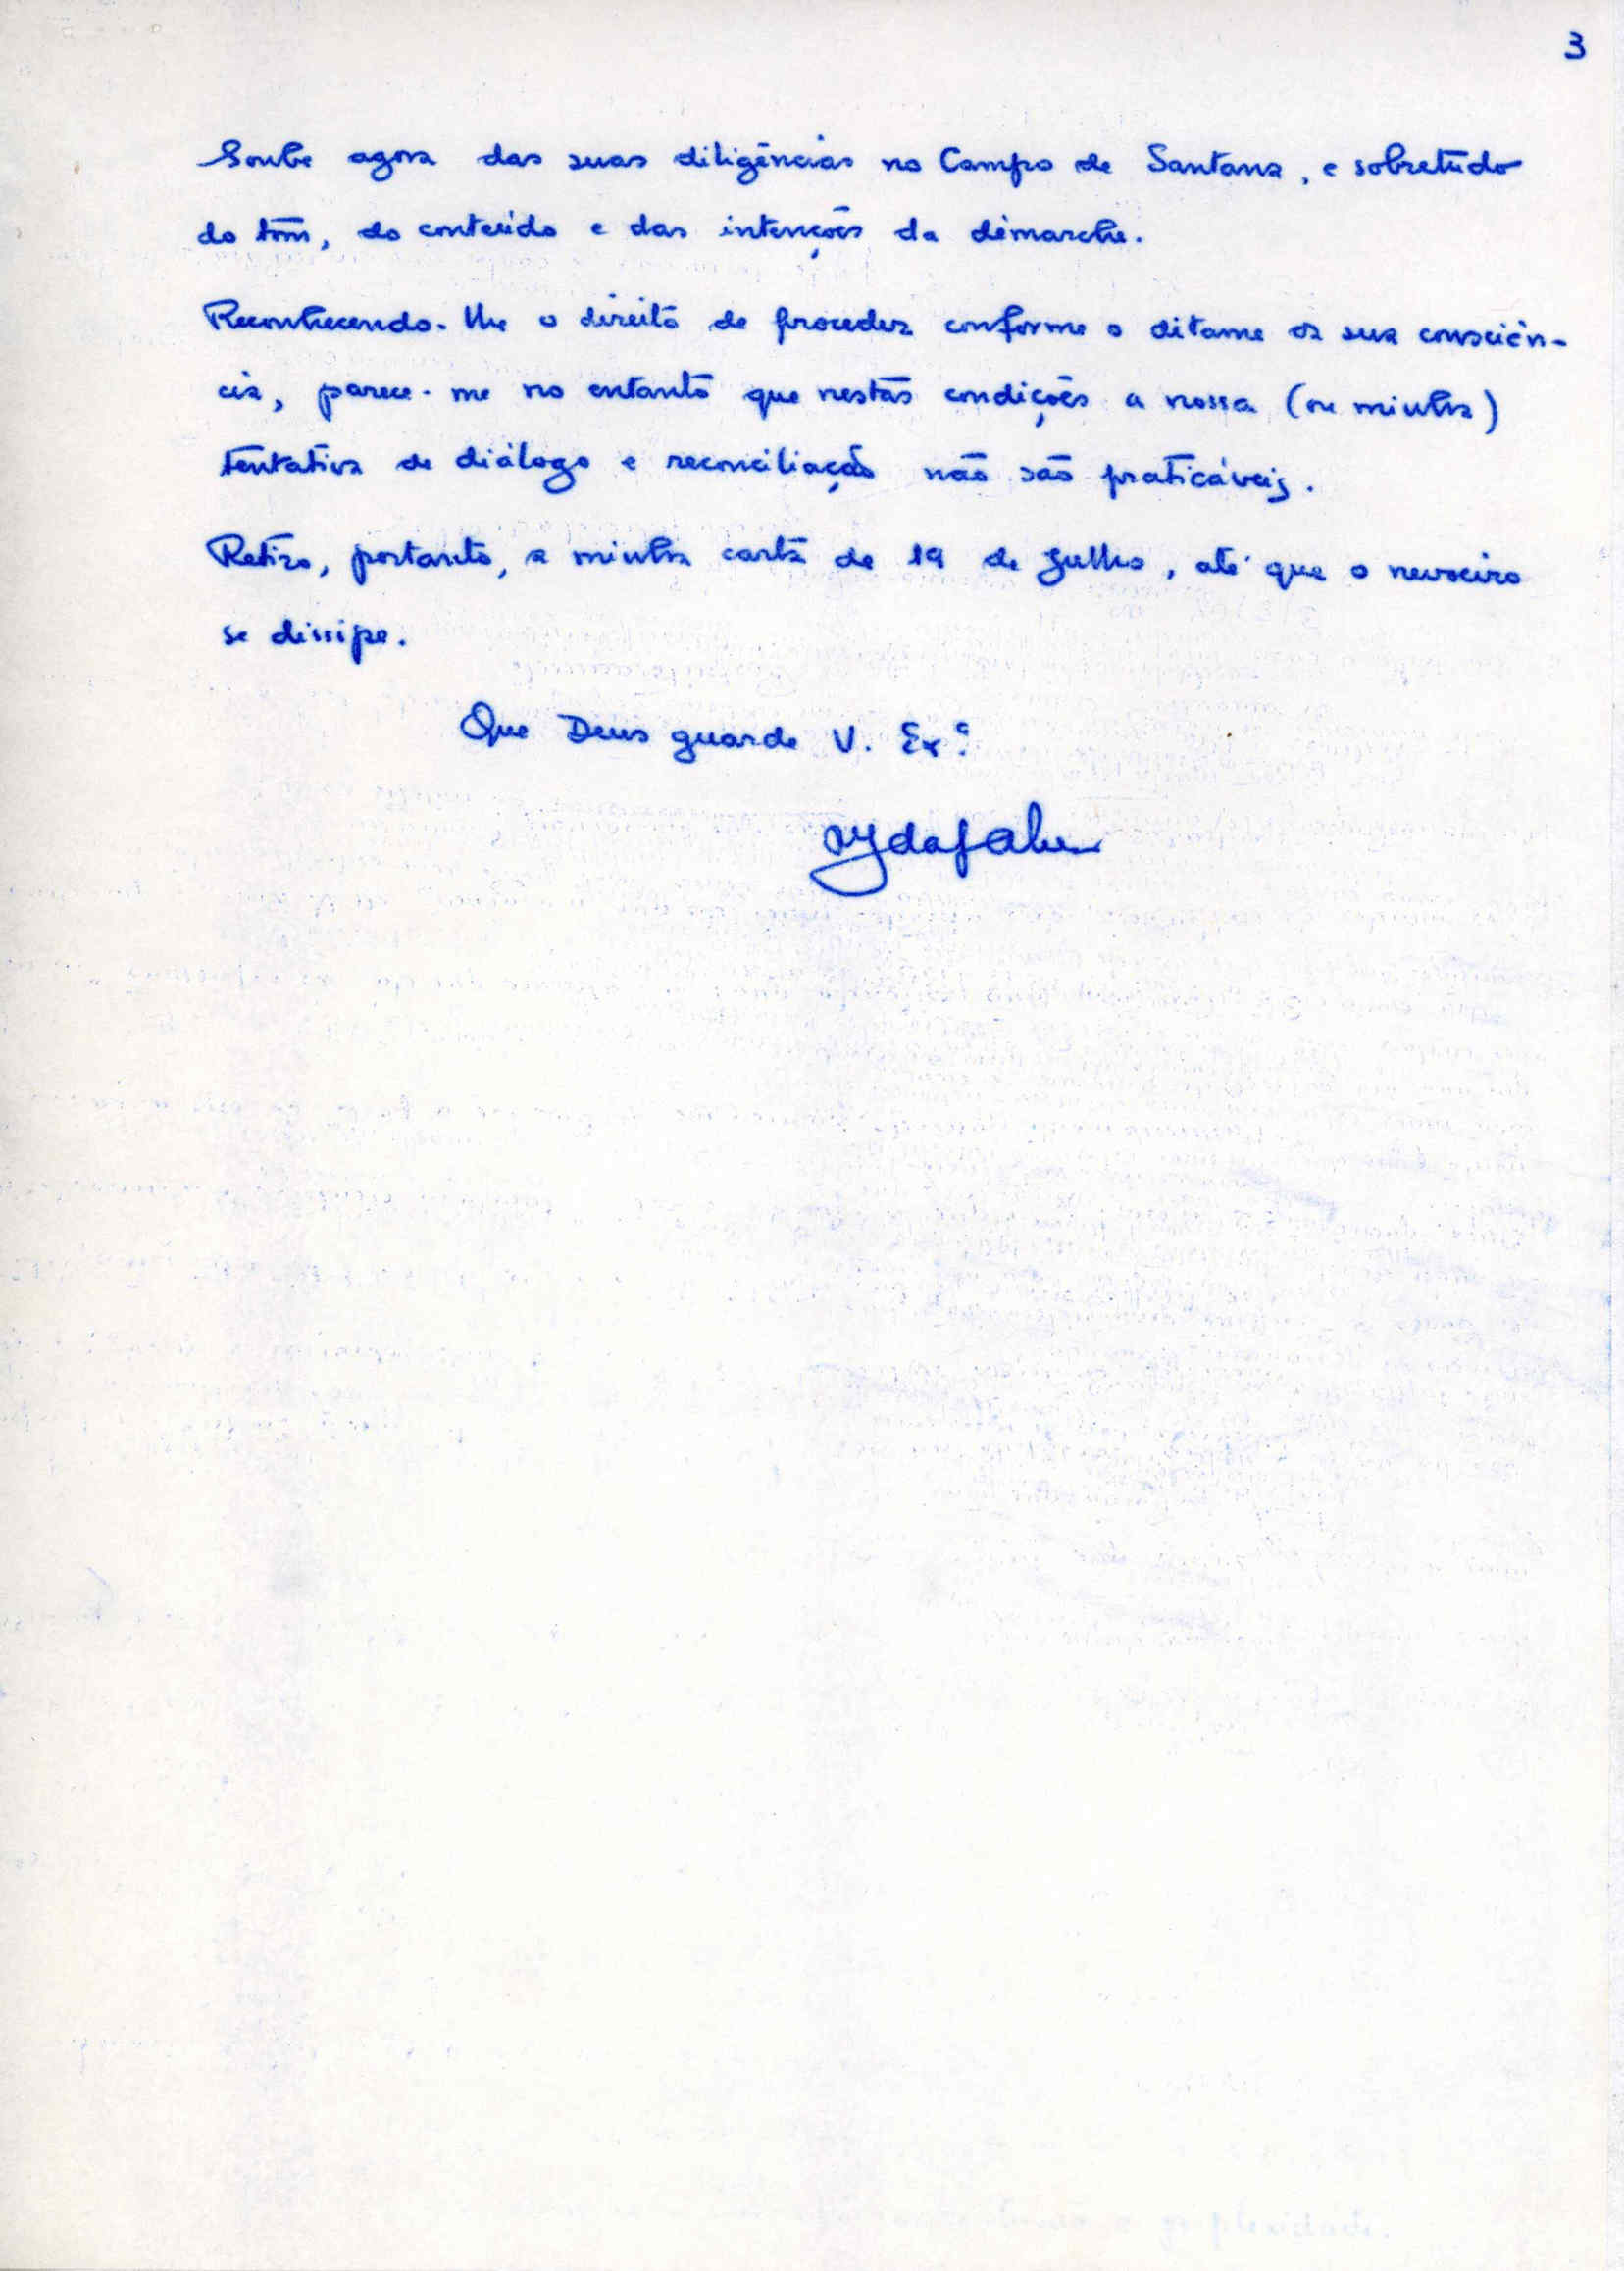 3
Soube agora das suas diligências no Campo de Santana, e sobretudo
do tom, do conteúdo e das intenções da démarche.
Reconhecendo-lhe o direito de proceder conforme o ditame da sua consciên-
cia, parece-me no entanto que nestas condições a nossa (ou minha)
tentativa de diálogo e reconciliação não são praticáveis.
Retiro, portanto, a minha carta de 19 de Julho, até que o nevoeiro
se dissipe.
Que Deus guarde V. Exª